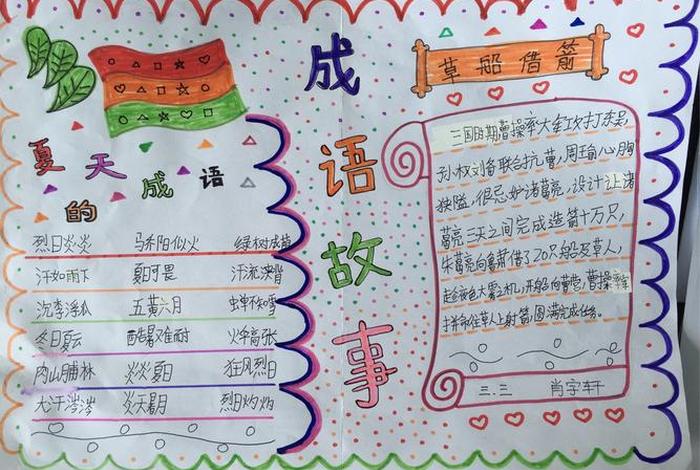 成语故事
夏天的成语
烈日炎炎 骄阳似火 绿树成荫
汗如雨下 夏日可畏 汗流浃背
沉李浮瓜 五黄六月 蝉不知雪
冬日夏云 酷暑难耐 火伞高张
肉山脯林 炎炎夏日 狂风烈日
大汗涔涔 炎天暑月 烈日灼灼
草船借箭
三国时期曹操率大军攻打东吴,
孙权刘备联合抗曹,周瑜心胸
狭隘,很忌妒诸葛亮,设计让诸
葛亮三天之间完成造箭十万只,
诸葛亮向鲁肃借了20只船及草人,
趁夜色大雾之机,开船向曹营,曹操率
士拼命往草人上射箭,圆满完成任务。
三.三 肖字轩